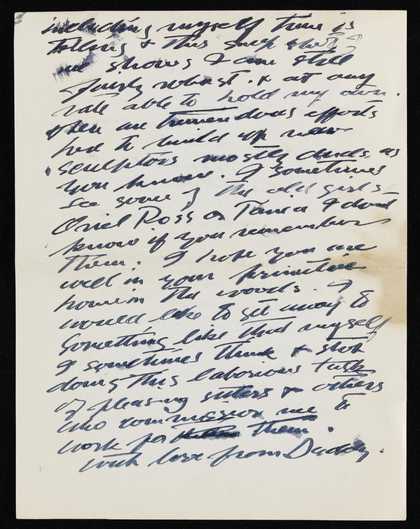 including myself time is
telling & this such
me shows I am still
fairly robust. & at any
rate able to hold my own.
There are tremendous efforts
had to build up new
sculptors mostly duds as
you know. I sometimes
see some of the old girls
Oriel Ross or Tania I dont
know if you remember
them. I hope you are
well in your primitive
home in the woods. I
would like to get away to
something like that myself
I sometimes think & stop
doing this laborious task
of pleasing sitters & others
who commission me to
work for them.
with love from Daddy.